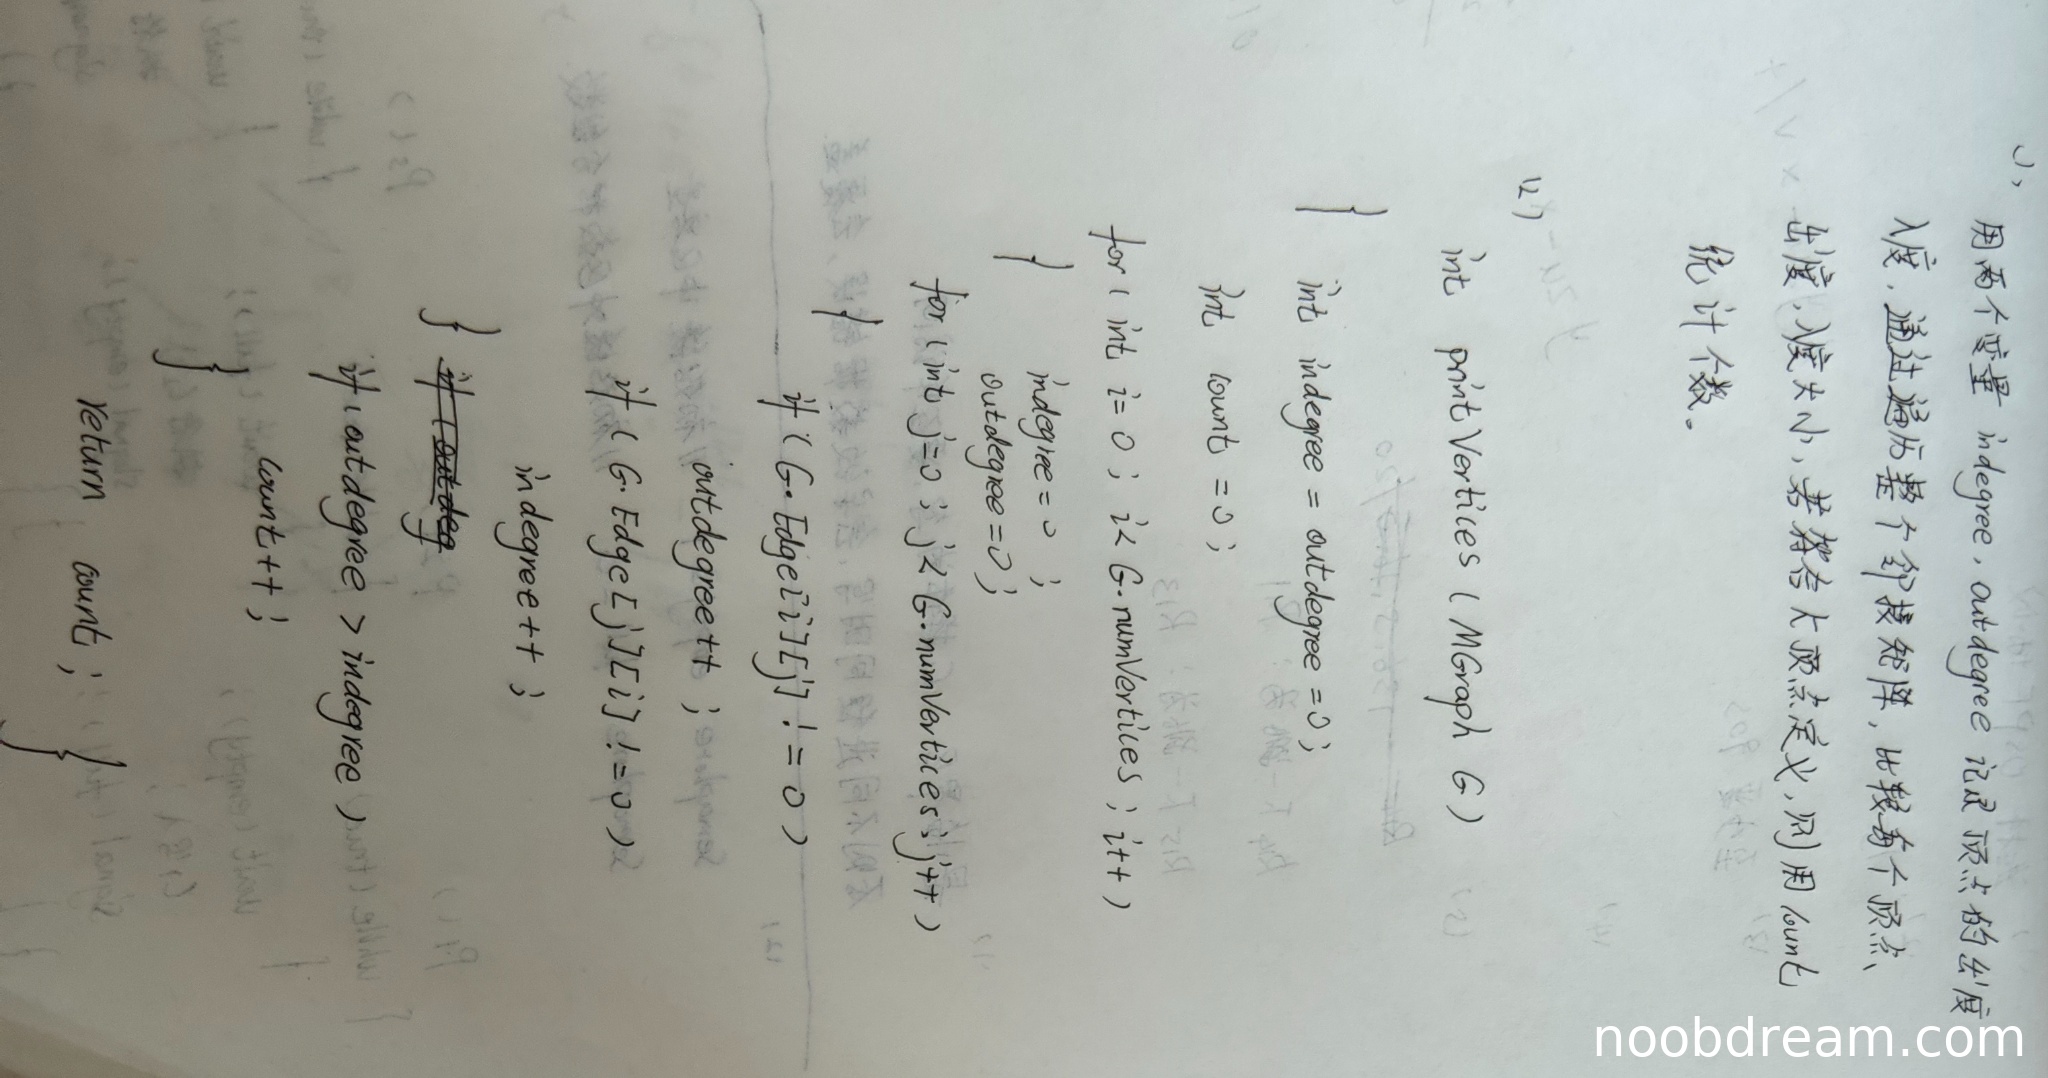 1)、用两个变量 indegree, outdegree 记录顶点的出度
入度，通过遍历整个邻接矩阵，比较每个顶点、
出度，入度大小，若符合 K 顶点定义，则用 count
统计个数。
(2)
int printVertices (MGraph G)
{
int indegree = outdegree = 0;
int count = 0;
for (int i = 0; i < G.numVertices; i++)
{
indegree = 0;
outdegree = 0;
for (int j = 0; j < G.numVertices; j++)
{
if (G.Edge[i][j] != 0)
outdegree++;
if (G.Edge[j][i] != 0)
indegree++;
}
if (outdegree > indegree)
count++;
}
return count;
}
noobdream.com